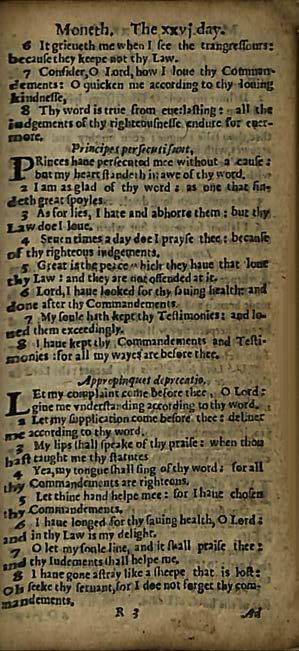 Moneth. The xxvj.day.
6 It grieueth me when I see the transgressours:
because they keepe not thy Law.
7 Consider, O Lord, how I loue thy Comman-
dements: O quicken me according to thy louing
kindnesse,
8 Thy word is true from euerlasting: all the
iudgements of thy righteousnesse endure for euer-
more.
Principes persecuti sunt,
PRinces haue persecuted mee without a cause:
but my heart standeth in awe of thy word.
2 I am as glad of thy word: as one that fin-
deth great spoyles.
3 As for lies, I hate and abhorre them: but thy
Law doe I loue.
4 Seuen times a day doe I prayse thee: because
of thy righteous iudgements.
5 Great is the peace hich they haue that loue
thy Law: and they are not offended at it.
6 Lord, I haue looked for thy sauing health: and
done after thy Commandements.
7 My soule hath kept thy Testimonies: and lo-
ued them exceedingly.
8 I haue kept thy Commandements and Testi-
monies: for all my wayes are before thee.
Appropinquet deprecatio,
LEt my complaint come before thee, O Lord:
giue me vnderstanding according to thy word.
2 Let my supplication come before thee: deliuer
me according to thy word.
3 My lips shall speake of thy praise: when thou
hast taught me thy statutes
4 Yea, my tongue shall sing of thy word: for all
thy Commandements are righteous.
5 Let thine hand helpe mee: for I haue chosen
thy Commandements,
6 I haue longed for thy sauing health, O Lord:
and in thy Law is my delight.
7 O let my soule liue, and it shall praise thee:
and thy Iudements shall helpe me.
8 I haue gone astray like a sheepe that is lost:
Oh seeke thy seruant, for I doe not forget thy com-
mandements.
R 3 Ad